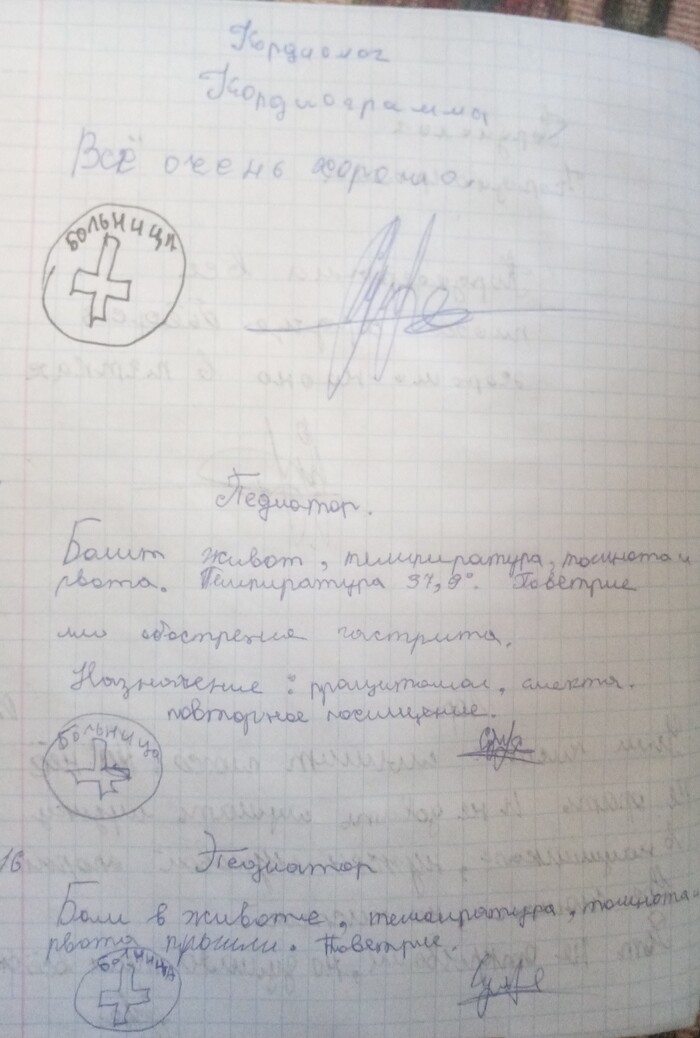 Кордиолог
Кордиограмма
Всё очень хорошо
БОЛЬНИЦА
Педиатор.
Болит живот, темпиратура, тошнота и
рвота. Темпиратура 37,9°. Поветрие
или обострения гастрита.
Назначение: смекта.
повторное посищение.
Больница
16
Педиатор
Боли в животе, темпиратурра, тошнота и
рвота прошли. Поветрие.
Больница